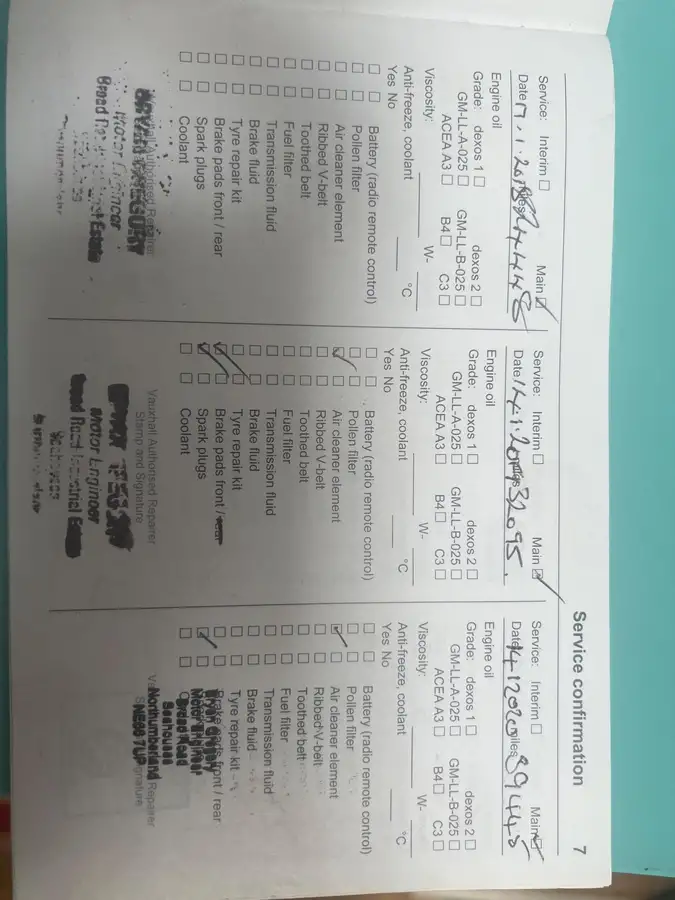 Service confirmation 7
Service: Interim Main
Date 17.1.2018
Engine oil
Grade: dexos 1 dexos 2
GM-LL-A-025 GM-LL-B-025
ACEA A3 B4 C3
Viscosity: W-
Anti-freeze, coolant °C
Yes No
Battery (radio remote control)
Pollen filter
Air cleaner element
Ribbed V-belt
Toothed belt
Fuel filter
Transmission fluid
Brake fluid
Tyre repair kit
Brake pads front / rear
Spark plugs
Coolant
Authorised Repairer
GREGORY
Motor Engineer
Broad Estate
Service: Interim Main
Date 14.1.2019 32095.
Engine oil
Grade: dexos 1 dexos 2
GM-LL-A-025 GM-LL-B-025
ACEA A3 B4 C3
Viscosity: W-
Anti-freeze, coolant °C
Yes No
Battery (radio remote control)
Pollen filter
Air cleaner element
Ribbed V-belt
Toothed belt
Fuel filter
Transmission fluid
Brake fluid
Tyre repair kit
Brake pads front / rear
Spark plugs
Coolant
Vauxhall Authorised Repairer
Stamp and Signature
Motor Engineer
Road Industrial Estate
Seahouses
Service: Interim Main
Date 14 1 2020 Miles 39445
Engine oil
Grade: dexos 1 dexos 2
GM-LL-A-025 GM-LL-B-025
ACEA A3 B4 C3
Viscosity: W-
Anti-freeze, coolant °C
Yes No
Battery (radio remote control)
Pollen filter
Air cleaner element
Ribbed V-belt
Toothed belt
Fuel filter
Transmission fluid
Brake fluid
Tyre repair kit
Brake pads front / rear
Bryan Gregory
Motor Engineer
Broad Road
Seahouses
Northumberland Repairer
NE68 7UP Signature